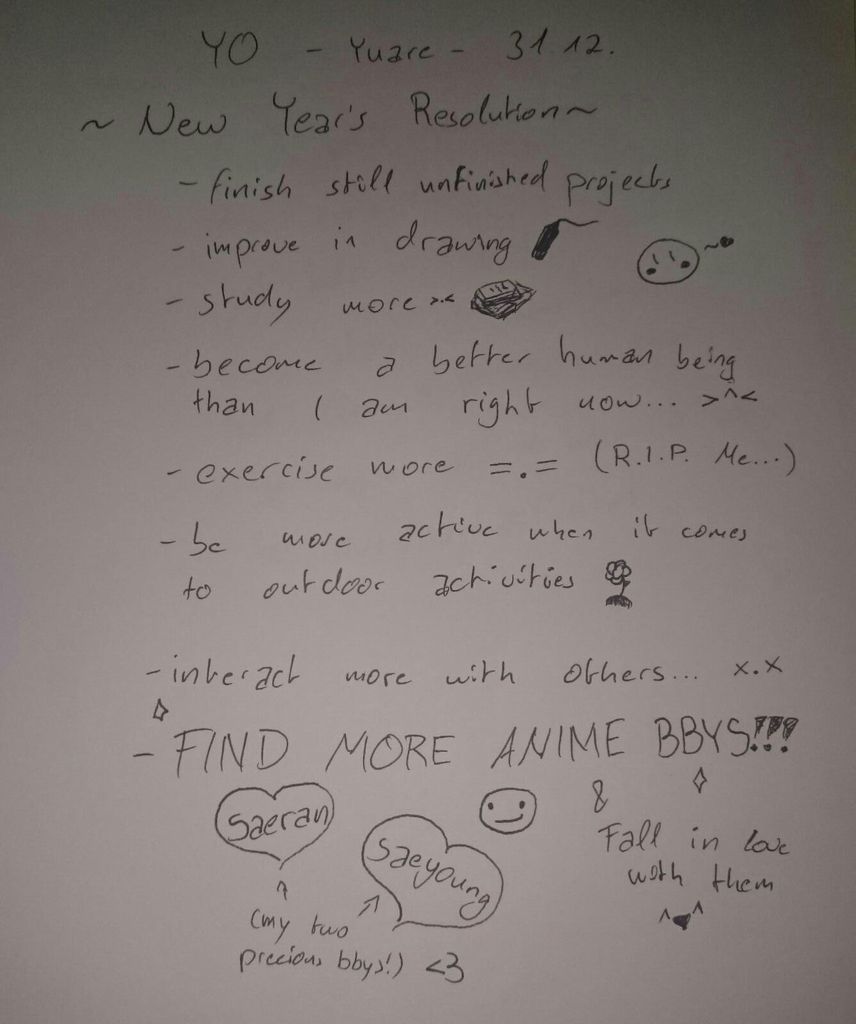 YO - Yuare - 31.12.
~ New Year's Resolution ~
- finish still unfinished projects
- improve in drawing
- study more >.<
- become a better human being
than I am right now... >^<
- exercise more =.= (R.I.P. Me...)
- be more active when it comes
to outdoor activities
- interact more with others... x.x
- FIND MORE ANIME BBYS!!!
Saeran
Saeyoung
&
Fall in love
with them
^♥^
(my two
precious bbys!) <3